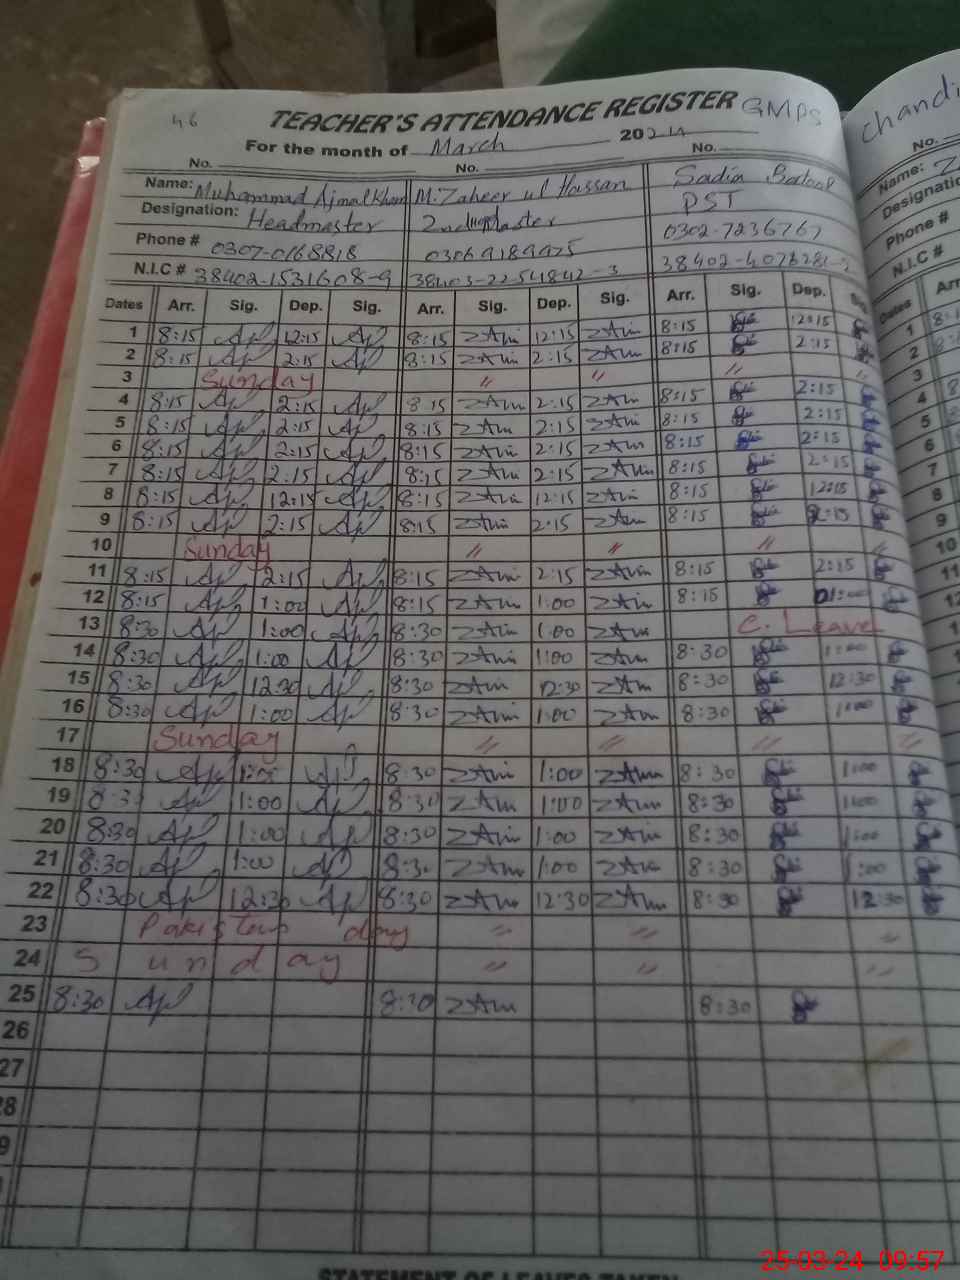 46
TEACHER'S ATTENDANCE REGISTER GMPS
For the month of March 2024
No. No. No.
Name: Muhammad Ajmal Khan M. Zaheer ul Hassan Sadia Batool
Designation: Headmaster 2nd Master PST
Phone # 0307-0168818 03069189975 0302-7236767
N.I.C # 38402-1531608-9 38403-22-54842-3
Dates Arr. Sig. Dep. Sig. Arr. Sig. Dep. Sig. Arr. Sig. Dep.
1 8:15 12:15 8:15 ZAm 12:15 ZAm 8:15 12:15
2 8:15 2:15 8:15 ZAm 2:15 ZAm 8:15 2:15
3 Sunday " " " "
4 8:15 2:15 8:15 ZAm 2:15 ZAm 8:15 2:15
5 8:15 2:15 8:15 ZAm 2:15 ZAm 8:15 2:15
6 8:15 2:15 8:15 ZAm 2:15 ZAm 8:15 2:15
7 8:15 2:15 8:15 ZAm 2:15 ZAm 8:15 2:15
8 8:15 12:15 8:15 ZAm 12:15 ZAm 8:15 12:15
9 8:15 2:15 8:15 ZAm 2:15 ZAm 8:15 2:15
10 Sunday " " " "
11 8:15 2:15 8:15 ZAm 2:15 ZAm 8:15 2:15
12 8:15 1:00 8:15 ZAm 1:00 ZAm 8:15 01:00
13 8:30 1:00 8:30 ZAm 1:00 ZAm C. Leave
14 8:30 1:00 8:30 ZAm 1:00 ZAm 8:30 1:00
15 8:30 12:30 8:30 ZAm 12:30 ZAm 8:30 12:30
16 8:30 1:00 8:30 ZAm 1:00 ZAm 8:30 1:00
17 Sunday " " " "
18 8:30 1:00 8:30 ZAm 1:00 ZAm 8:30 1:00
19 8:30 1:00 8:30 ZAm 1:00 ZAm 8:30 1:00
20 8:30 1:00 8:30 ZAm 1:00 ZAm 8:30 1:00
21 8:30 1:00 8:30 ZAm 1:00 ZAm 8:30 1:00
22 8:30 12:30 8:30 ZAm 12:30 ZAm 8:30 12:30
23 Pakistan day " " "
24 Sunday " " "
25 8:30 8:30 ZAm 8:30
26
27
28
9
STATEMENT OF LEAVES TAKEN
No.
Name:
Designation
Phone #
N.I.C #
Dates Arr
1
2
3
4
5
6
7
8
9
10
11
25-03-24 09:57